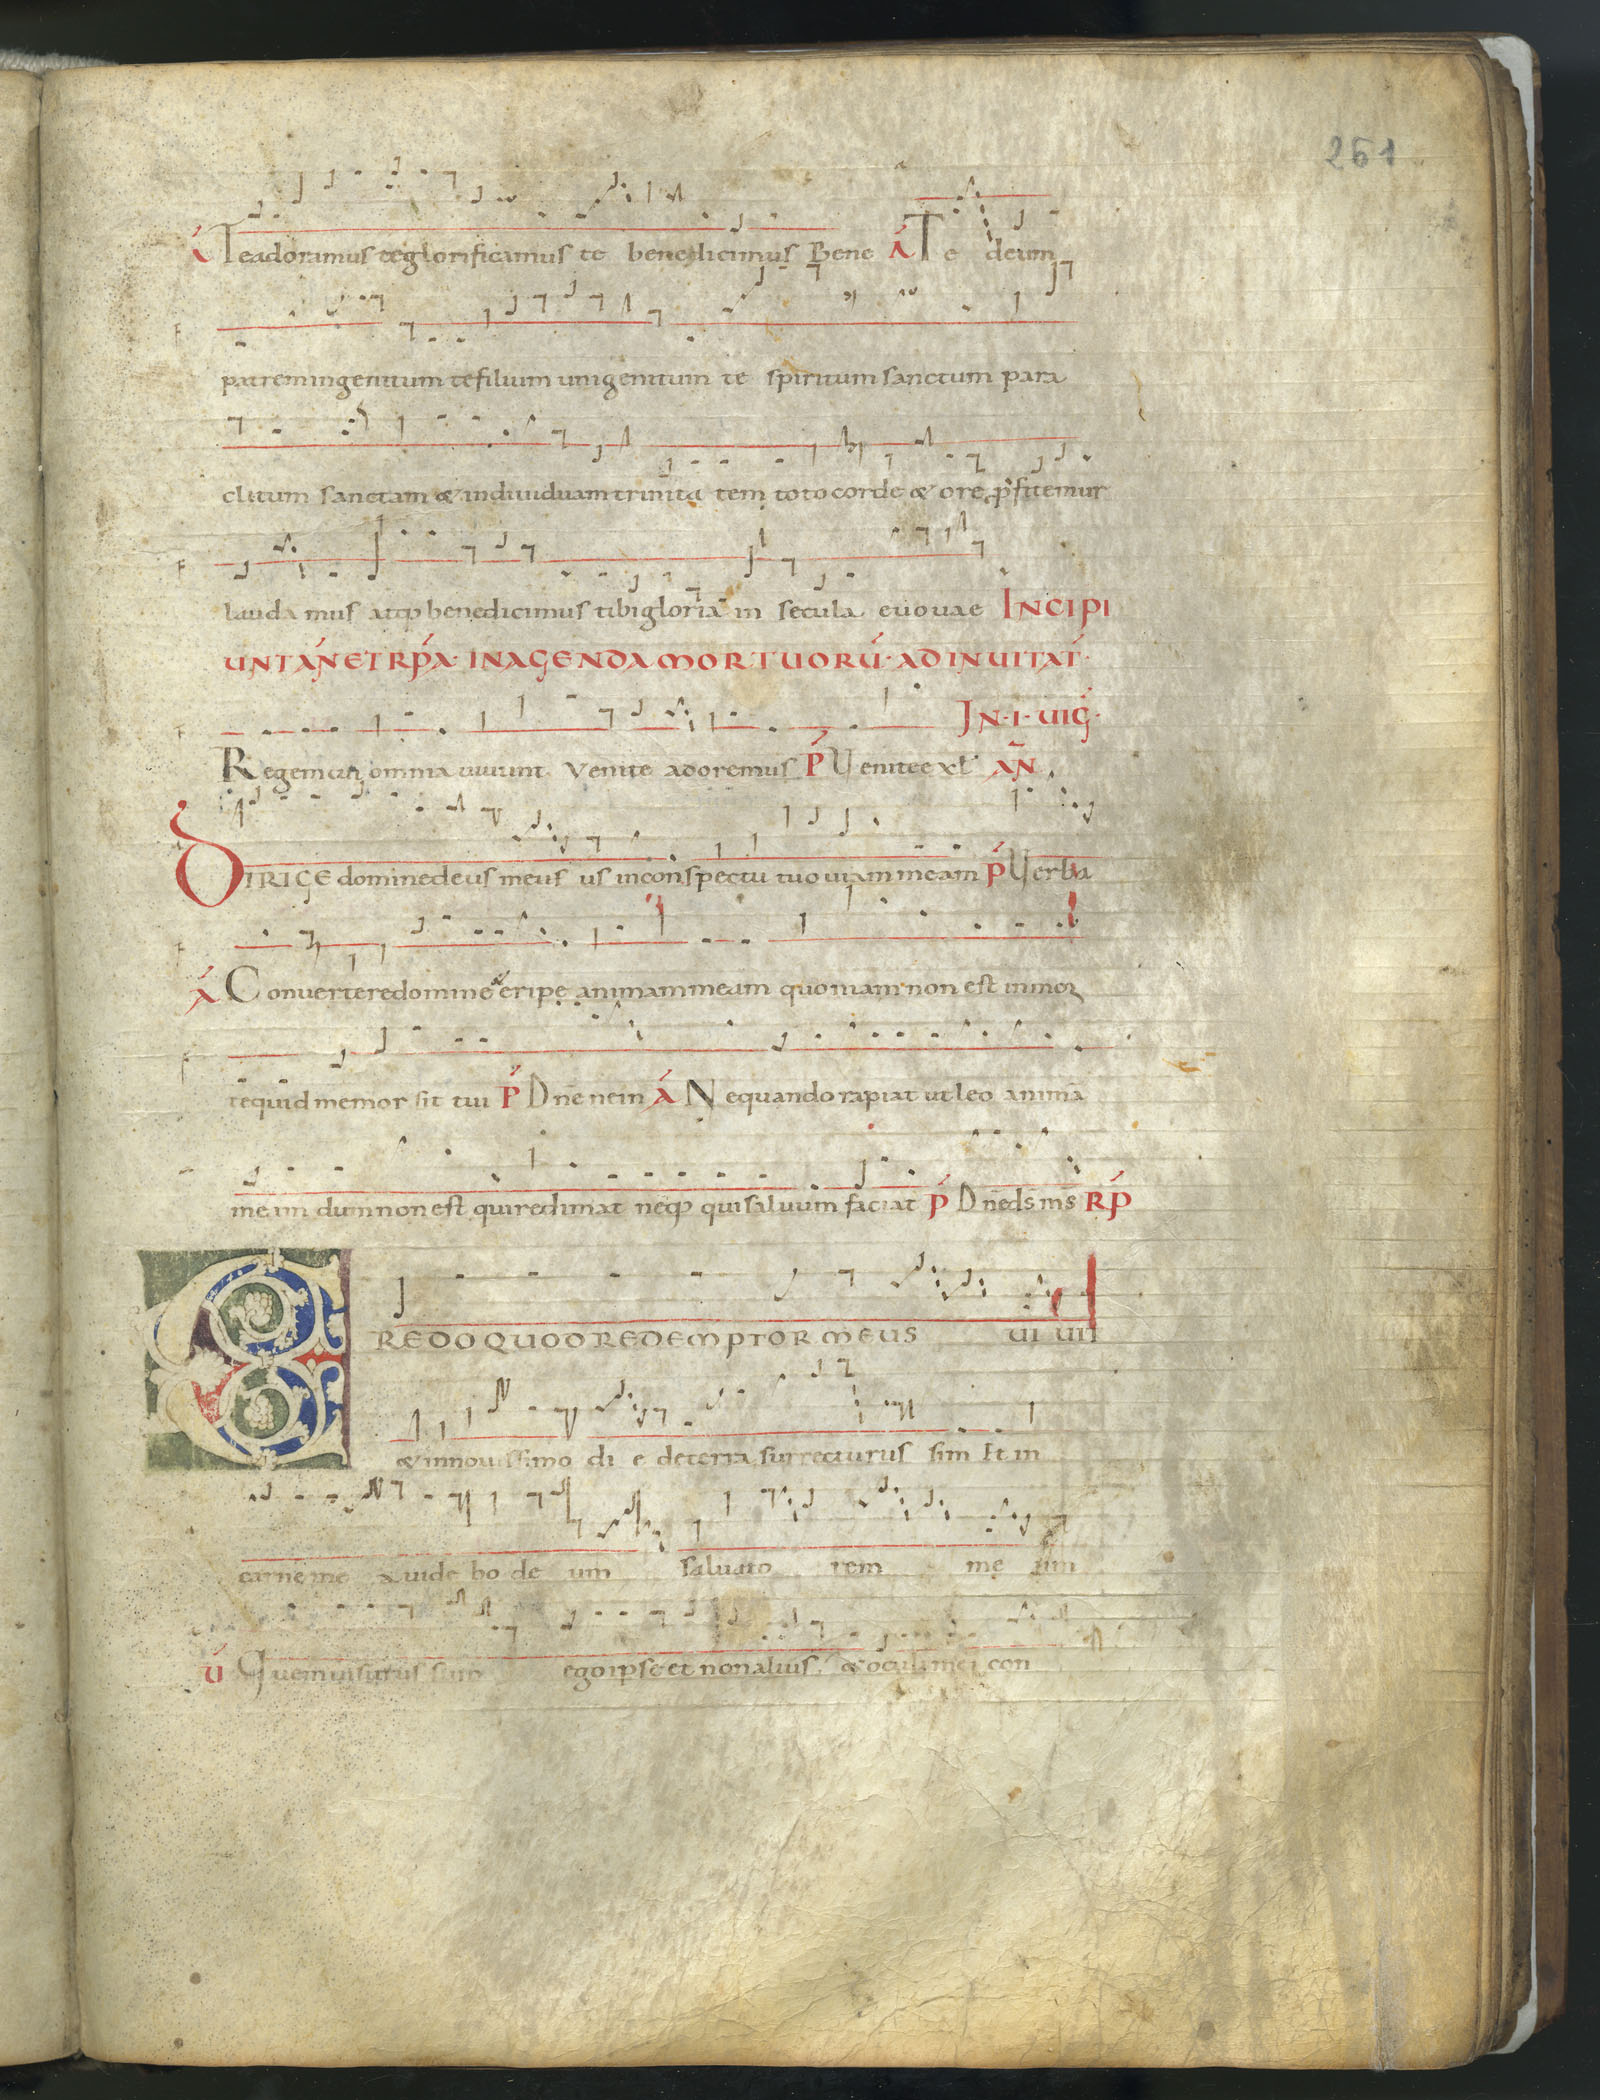 261
A Teadoramus teglorificamus te benedicimus Bene A Te deum
patremingenitum tefilium unigenitum te spiritum sanctum para
clitum sanctam & indiuiduamtrinita tem totocorde & ore p̱fitemur
lauda mus atq; benedicimus tibigloria in secula euouae INCIPI
UNTAN̄ ET RP̄A· IN AGENDA MORTUORŪ· AD INUITAT̄·
IN·I·UIḠ·
Regemcui omniauiuunt Venite adoremus P̄ Venitee xl̄ AN̄
DIRIGE dominedeus meus us inconspectu tuo uiammeam P̄ Verba
A Conuerteredomine & eripe animammeam quoniamnon est inmor
tequid memor sit tui P̄ Dn̄e nein A Nequando rapiat ut leo animā
meam dumnonest quiredimat neq; quisaluum faciat P̄ Dn̄eds̄ ms̄ RP̄
CREDO QUOD REDEMPTOR MEUS UI UIT
& innouissimo di e deterra surrecturus sim Et in
carne me &uide bo de um saluato rem me um
V̄ Quemuisurus sum egoipse et nonalius & oculi mei con